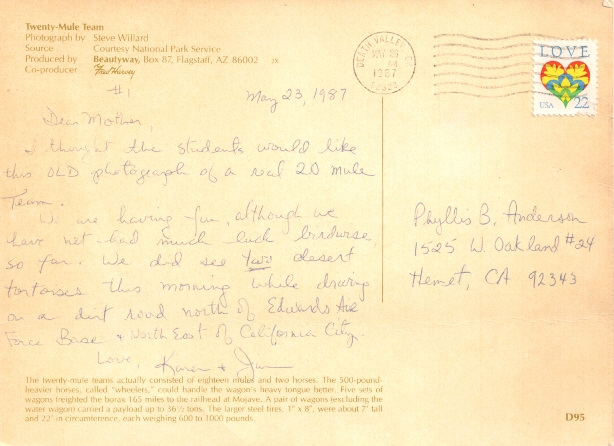 Twenty-Mule Team
Photograph by Steve Willard
Source Courtesy National Park Service
Produced by Beautyway, Box 87, Flagstaff, AZ 86002 JX
Co-producer Fred Harvey
#1
May 23, 1987
Dear Mother,
I thought the students would like
this OLD photograph of a real 20 mule
Team.
We are having fun, although we
have not had much luck birdwise
so far. We did see two desert
tortoises this morning while driving
on a dirt road north of Edwards Air
Force Base & North East of California City.
Love, Karen & Jim
The twenty-mule teams actually consisted of eighteen mules and two horses. The 500-pound-
heavier horses, called "wheelers," could handle the wagon's heavy tongue better. Five sets of
wagons freighted the borax 165 miles to the railhead at Mojave. A pair of wagons (excluding
the water wagon) carried a payload up to 36½ tons. The larger steel tires, 1" x 8", were about 7' tall
and 22' in circumference, each weighing 600 to 1000 pounds.
DEATH VALLEY, CA
1987
LOVE
USA 22
Phyllis B. Anderson
1525 W. Oakland #24
Hemet, CA 92343
D95